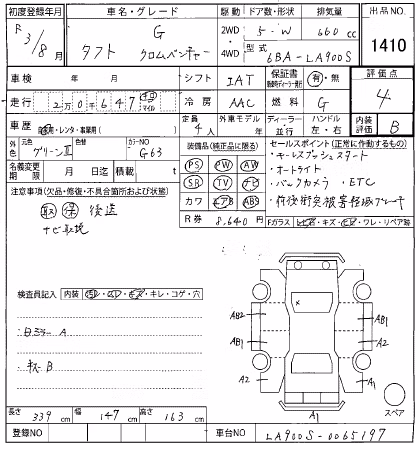 初度登録年月
R 3/8月
車名・グレード
G
タフト クロムベンチャー
駆動
2WD
4WD
ドア数・形状
5-W
排気量
660 cc
型式
6BA-LA900S
出品NO
1410
車検 年 月
シフト
IAT
保証書
有・無
評価点
4
走行
2万0千647
キロ
マイル
冷房
AAC
燃料
G
車歴
自家用・レンタ・事業用( )
定員
4人
外車モデル
年
ディーラー
並行
ハンドル
左・右
内装
評価
B
外色
元色
グリーンII
色替
カラーNO
G63
名義変更
期限
月 日迄
積載
t
装備品(純正品に限る)
PS PW AW
SR TV ナビ
カワ エアB ABS
R券
8,640円
セールスポイント(正常に作動するもの)
・キーレスプッシュスタート
・オートライト
・バックカメラ ・ETC
・前後衝突被害軽減ブレーキ
注意事項(欠品・修復・不具合箇所および状態)
取 保 後送
ナビ取説
Fガラス
・キズ・
・ワレ・リペア跡
検査員記入
内装
・キレ・コゲ・穴
A
キズ B
AB2
AB1
A2
A1
AB1
A2
A1
A1
スペア
長さ
339 cm
幅
147 cm
高さ
163 cm
登録NO
車台NO
LA900S-0065197